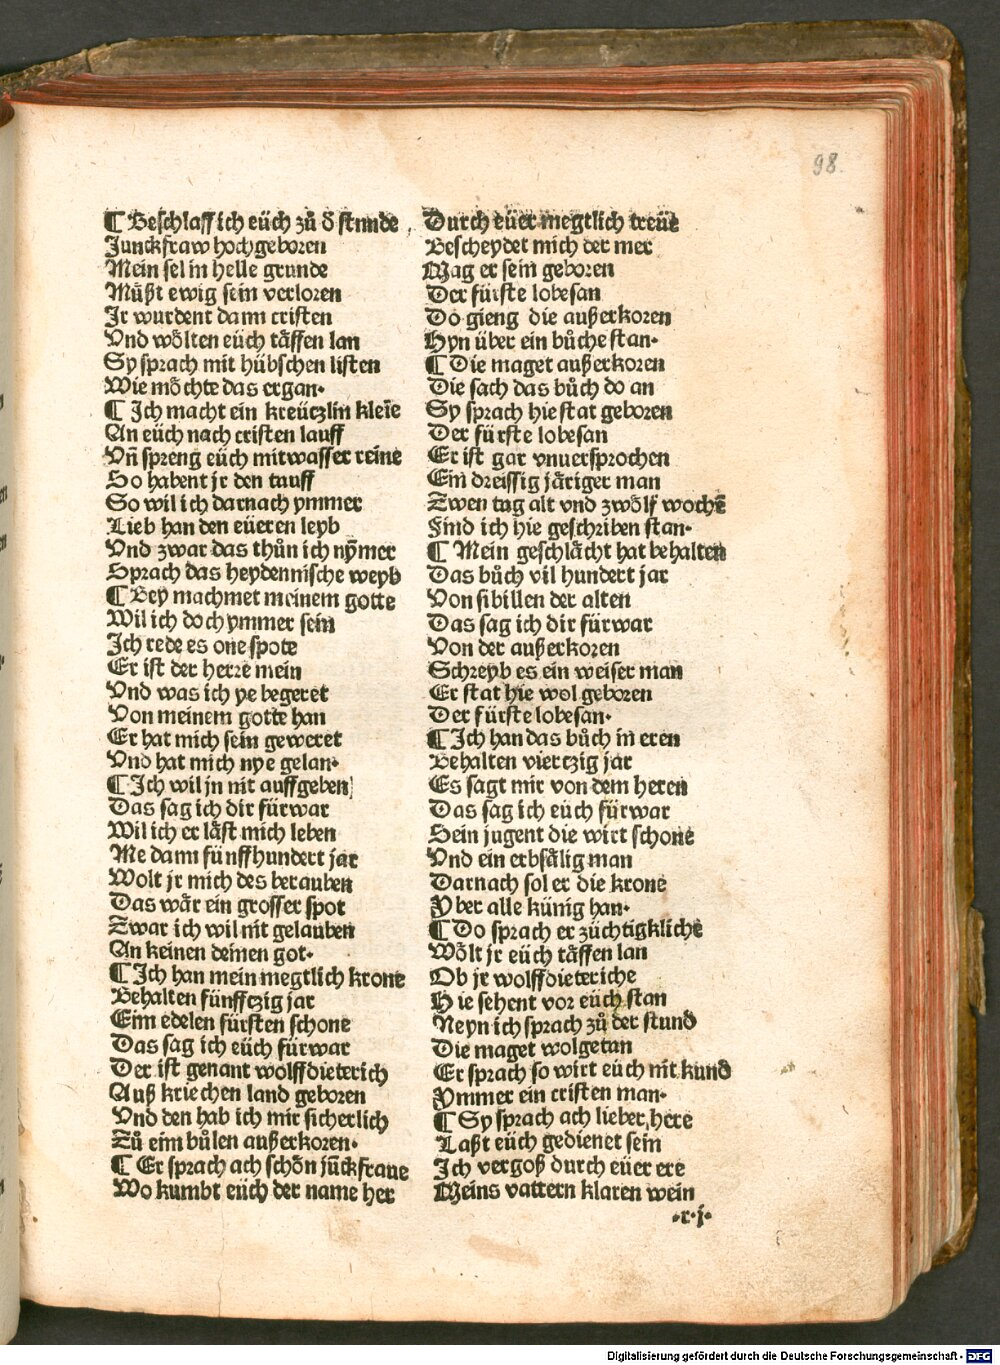 98.
¶ Beschlaff ich eüch zů d̕ stunde
Junckfraw hochgeboren
Mein sel in helle grunde
Můßt ewig sein verloren
Ir wurdent dann cristen
Vnd wölten eüch täffen lan
Sy sprach mit hübschen listen
Wie möchte das ergan·
¶ Ich macht ein kreüczlin kleīe
An eüch nach cristen lauff
Vn̄ spreng eüch mit wasser reine
So habent jr den tauff
So wil ich darnach ymmer
Lieb han den eüeren leyb
Vnd zwar das thůn ich nȳmer
Sprach das heydennische weyb
¶ Bey machmet meinem gotte
Wil ich doch ymmer sein
Ich rede es one spote
Er ist der herre mein
Vnd was ich ye begeret
Von meinem gotte han
Er hat mich sein geweret
Vnd hat mich nye gelan·
¶ Ich wil jn nit auffgeben
Das sag ich dir fürwar
Wil ich er läst mich leben
Me dann fünffhundert jar
Wolt jr mich des berauben
Das wär ein grosser spot
Zwar ich wil nit gelauben
An keinen deinen got·
¶ Ich han mein megtlich krone
Behalten fünffczig jar
Eim edelen fürsten schone
Das sag ich eüch fürwar
Der ist genant wolffdieterich
Auß kriechen land geboren
Vnd den hab ich mir sicherlich
Zů eim bůlen außerkoren·
¶ Er sprach ach schön jūckfraue
Wo kumbt eüch der name her
Durch eüer megtlich treüe
Bescheydet mich der mer
Mag er sein geboren
Der fürste lobesan
Do gieng die außerkoren
Hyn über ein bůche stan·
¶ Die maget außerkoren
Die sach das bůch do an
Sy sprach hie stat geboren
Der fürste lobesan
Er ist gar vnuersprochen
Ein dreissig järiger man
Zwen tag alt vnd zwölf wochē
Find ich hie geschriben stan·
¶ Mein geschlächt hat behalten
Das bůch vil hundert jar
Von sibillen der alten
Das sag ich dir fürwar
Von der außerkoren
Schreyb es ein weiser man
Er stat hie wol geboren
Der fürste lobesan·
¶ Ich han das bůch in eren
Behalten viertzig jar
Es sagt mir von dem heren
Das sag ich eüch fürwar
Sein jugent die wirt schone
Vnd ein erbsälig man
Darnach sol er die krone
Yber alle künig han·
¶ Do sprach er züchtigkliche
Wölt jr eüch täffen lan
Ob jr wolffdieteriche
Hie sehent vor eüch stan
Neyn ich sprach zů der stund
Die maget wolgetan
Er sprach so wirt eüch nit kund
Ymmer ein cristen man·
¶ Sy sprach ach lieber here
Laßt eüch gedienet sein
Ich vergoß durch eüer ere
Meins vattern klaren wein
·r·j·
Digitalisierung gefördert durch die Deutsche Forschungsgemeinschaft - DFG